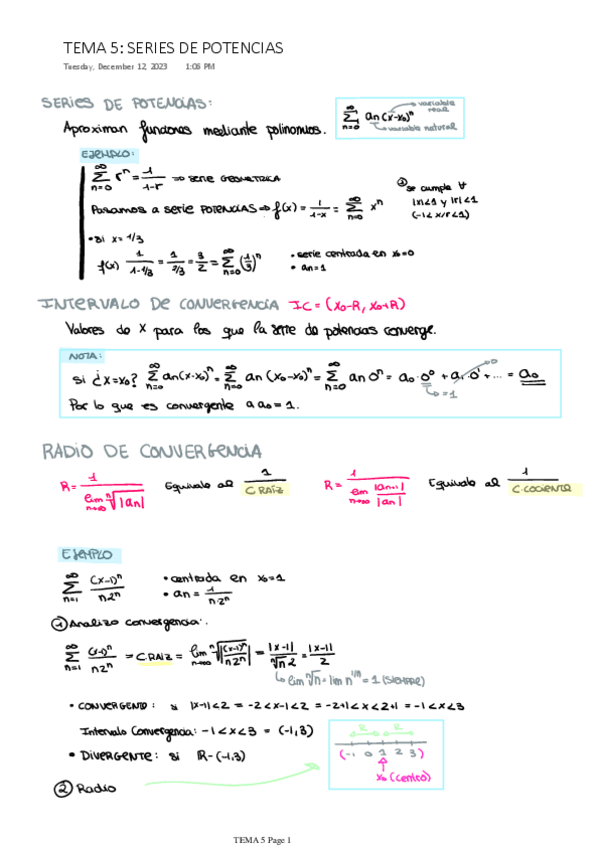 TEMA 5: SERIES DE POTENCIAS
Tuesday, December 12, 2023 1:06 PM
SERIES DE POTENCIAS:
∞ Σ n=0 an(x-x₀)ⁿ → variable real
→ variable natural
Aproximan funciones mediante polinomios.
EJEMPLO:
∞ Σ n=0 rⁿ = 1/(1-r) ⇒ SERIE GEOMETRICA
Pasamos a serie POTENCIAS ⇒ f(x) = 1/(1-x) = ∞ Σ n=0 xⁿ
se cumple ∀
|x|<1 y |r|<1
(-1< x/r <1)
• Si x = 1/3
f(x) 1/(1-1/3) = 1/(2/3) = 3/2 = ∞ Σ n=0 (1/3)ⁿ
• serie centrada en x₀=0
• an=1
INTERVALO DE CONVERGENCIA IC = (x₀-R, x₀+R)
Valores de x para los que la serie de potencias converge.
NOTA:
Si ¿x=x₀? ∞ Σ n=0 an(x-x₀)ⁿ = ∞ Σ n=0 an (x₀-x₀)ⁿ = ∞ Σ n=0 an 0ⁿ = a₀·0⁰ + a₁·0¹ + ... = a₀
→ 0
↳ =1
Por lo que es convergente a a₀ = 1.
RADIO DE CONVERGENCIA
R = 1/(lim n→∞ ⁿ√|an|) Equivale al 1/C RAÍZ R = 1/(lim n→∞ |an+1|/|an|) Equivale al 1/C·COCIENTE
EJEMPLO
∞ Σ n=1 (x-1)ⁿ/n·2ⁿ
• centrada en x₀=1
• an = 1/n·2ⁿ
① Analizo convergencia:
∞ Σ n=1 (x-1)ⁿ/n2ⁿ = C RAIZ = lim n→∞ ⁿ√|(x-1)ⁿ/n2ⁿ| = |x-1|/ⁿ√n·2 = |x-1|/2
↳ lim ⁿ√n = lim n^(1/n) = 1 (SIEMPRE)
• CONVERGENTE: si |x-1|<2 = -2<x-1<2 = -2+1<x<2+1 = -1<x<3
Intervalo Convergencia: -1<x<3 = (-1,3)
• DIVERGENTE: si ℝ-(-1,3)
R R
(-1 0 1 2 3)
x₀ (centro)
② Radio
TEMA 5 Page 1